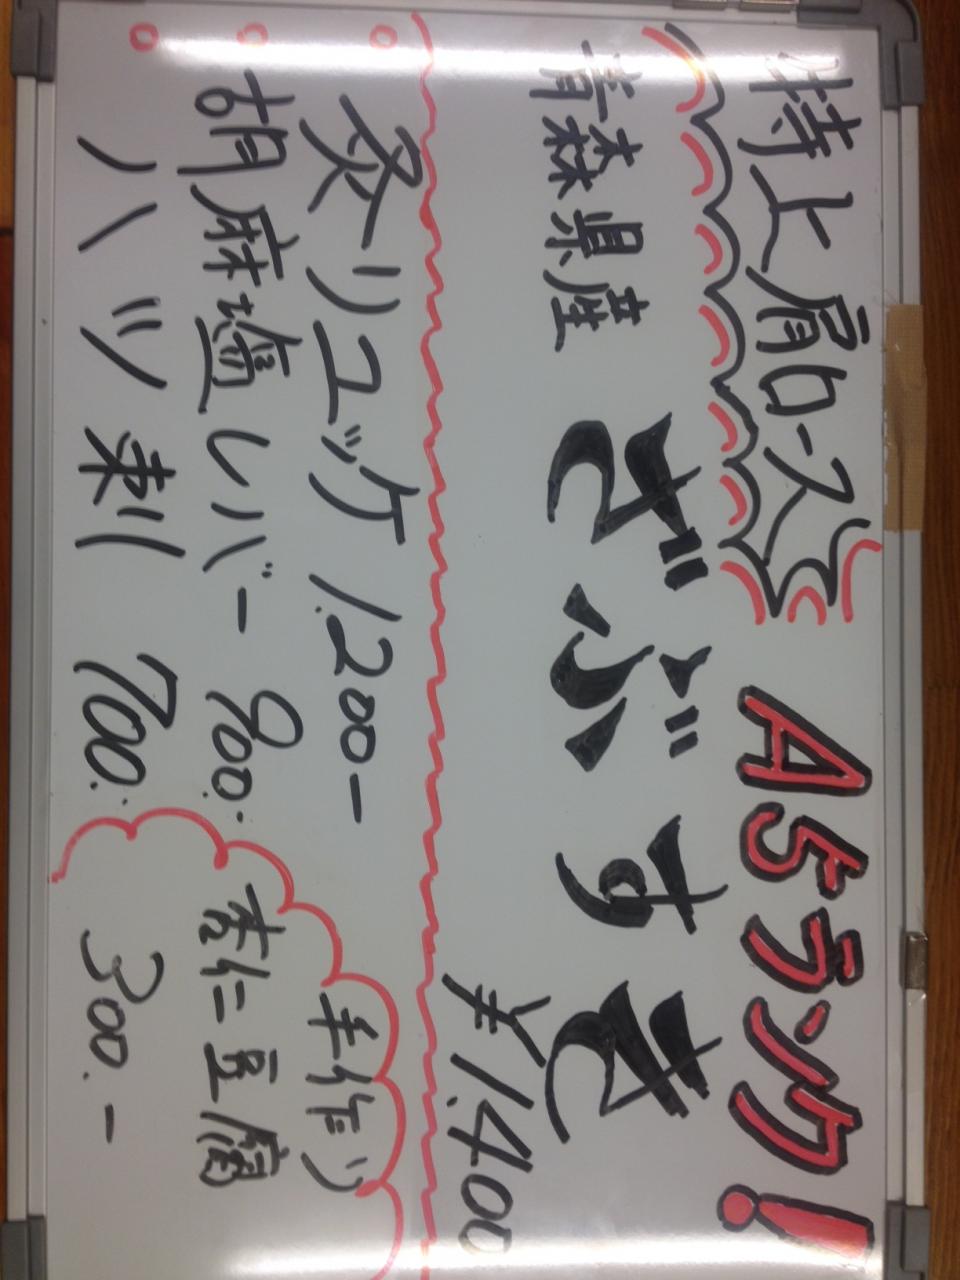 特上肩ロース A5ランク!
青森県産 ざぶすき
¥1,400
炙リユッケ 1,200-
胡麻塩レバー 900.-
ハツ刺 700.-
手作り
杏仁豆腐
300.-